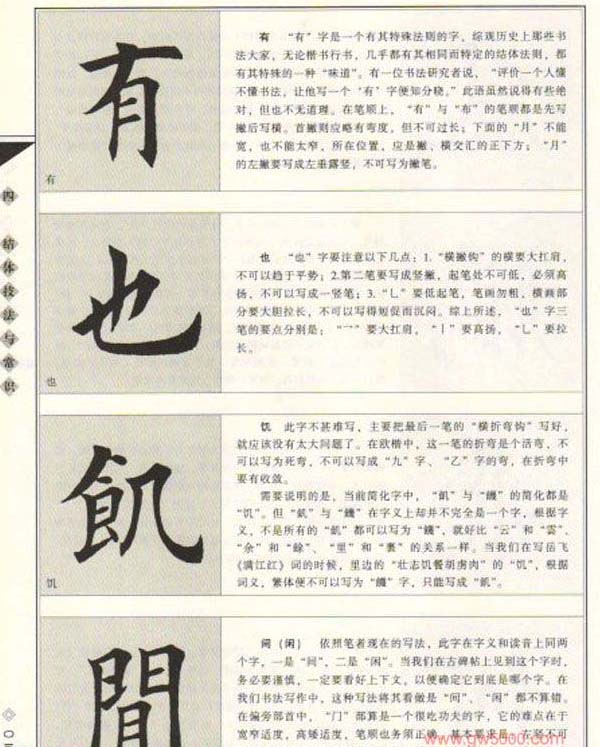 有
有
有 “有”字是一个有其特殊法则的字，综观历史上那些书
法大家，无论楷书行书，几乎都有其相同而特定的结体法则，都
有其特殊的一种“味道”。有一位书法研究者说，“评价一个人懂
不懂书法，让他写一个‘有’字便知分晓。”此语虽然说得有些绝
对，但也不无道理。在笔顺上，“有”与“布”的笔顺都是先写
撇后写横。首撇则应略有弯度，但不可过长；下面的“月”不能
宽，也不能太窄，所在位置，应是撇、横交汇的正下方；“月”
的左撇要写成左垂露竖，不可写为撇笔。
四 结体技法与常识
也
也
也 “也”字要注意以下几点：1.“横撇钩”的横要大扛肩，
不可以趋于平势；2.第二笔要写成竖撇，起笔处不可低，必须高
扬，不可以写成一竖笔；3.“乚”要低起笔，笔画勿粗，横画部
分要大胆拉长，不可以写得短促而沉闷。综上所述，“也”字三
笔的要点分别是：“乛”要大扛肩，“丨”要高扬，“乚”要拉
长。
飢
饥
饥 此字不甚难写，主要把最后一笔的“横折弯钩”写好，
就应该没有太大问题了。在欧楷中，这一笔的折弯是个活弯，不
可以写为死弯，不可以写成“九”字、“乙”字的弯，在折弯中
要有收敛。
需要说明的是，当前简化字中，“飢”与“饑”的简化都是
“饥”。但“飢”与“饑”在字义上却并不完全是一个字，根据字
义，不是所有的“飢”都可以写为“饑”，就好比“云”和“雲”、
“余”和“餘”、“里”和“裏”的关系一样。当我们在写岳飞
《满江红》词的时候，里边的“壮志饥餐胡虏肉”的“饥”，根据
词义，繁体便不可以写为“饑”字，只能写成“飢”。
間
间（闲） 依照笔者现在的写法，此字在字义和读音上同两
个字，一是“间”，二是“闲”。当我们在古碑帖上见到这个字时，
务必要谨慎，一定要看好上下文，以便确定它到底是哪个字。在
我们书法写作中，这种写法将其看做是“间”、“闲”都不算错。
在偏旁部首中，“门”部算是一个很吃功夫的字，它的难点在于
宽窄适度，高矮适度，笔顺也务须正确，基本要求是，左竖不可
www.gw5000.com